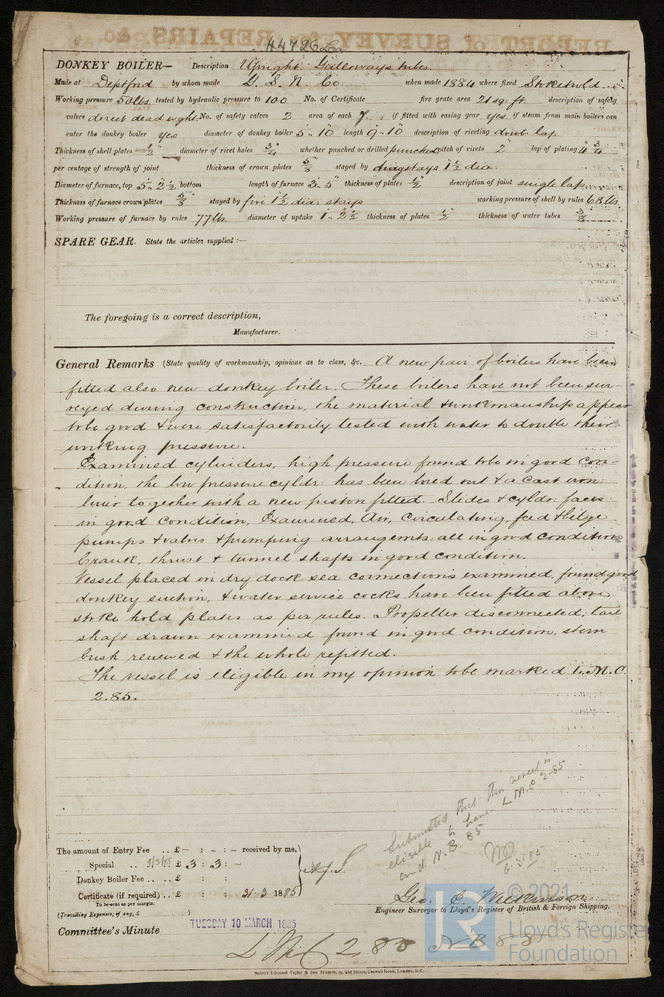 44726 Lon
REPORT of SURVEY REPAIRS &c.
DONKEY BOILER— Description Upright Galloways tubes.
Made at Deptford by whom made G. S. N. Co. when made 1884 where fixed Stokehold
Working pressure 50 lbs. tested by hydraulic pressure to 100 No. of Certificate fire grate area 21 sq. ft. description of safety
valves direct dead wght. No. of safety valves 2 area of each 7. if fitted with easing gear yes if steam from main boilers can
enter the donkey boiler yes diameter of donkey boiler 5-10 length 9-10 description of riveting doub. lap
Thickness of shell plates 1/2 diameter of rivet holes 3/4 whether punched or drilled punched pitch of rivets 2" lap of plating 4 3/4
per centage of strength of joint thickness of crown plates 5/8 stayed by stays 1 1/2 dia
Diameter of furnace, top 5-2 1/2 bottom length of furnace 3.5 thickness of plates 1/2 description of joint single lap
Thickness of furnace crown plates 5/8 stayed by five 1 1/2 dia. stays working pressure of shell by rules 68 lbs.
Working pressure of furnace by rules 77 lbs. diameter of uptake 1-2 1/2 thickness of plates 1/2 thickness of water tubes 3/8
SPARE GEAR. State the articles supplied:—
The foregoing is a correct description,
Manufacturer.
General Remarks (State quality of workmanship, opinions as to class, &c. A new pair of boilers have been
fitted also new donkey boiler. These boilers have not been sur-
veyed during construction, the material & workmanship appear
to be good & were satisfactorily tested with water to double their
working pressure.
Examined cylinders, high pressure found to be in good con-
dition, the low pressure cyldr has been bored out & a cast iron
liner together with a new piston fitted. Slides & cyldr faces
in good condition, Examined, Air, Circulating, feed & bilge
pumps & valves & pumping arrangemts all in good condition
Crank, thrust & tunnel shafts in good condition.
Vessel placed in dry dock sea connections examined, found good
donkey suction, & water service cocks have been fitted above
stoke hold plates as per rules. Propeller disconnected, tail
shaft drawn examined found in good condition, stern
bush renewed & the whole refitted.
The vessel is eligible in my opinion to be marked L.M.C
2.85.
Submitted that this vessel is
eligible to have L.M.C 2-85
and N.B. 85
6.3.85
The amount of Entry Fee .. £ - : - : - received by me,
Special .. £ 3 : 3 : -
Donkey Boiler Fee .. £
Certificate (if required) .. £ : : 3 1885
To be sent as per margin.
(Travelling Expenses, if any, £ )
Geo. C. Wilkinson
Engineer Surveyor to Lloyd's Register of British & Foreign Shipping.
Committee's Minute TUESDAY 10 MARCH 1885
LMC 2.85 NB 85
© 2021
Lloyd's Register
Foundation
Robert Edmund Taylor & Son Printers, 19, Old Street, Goswell Road, London, E.C.